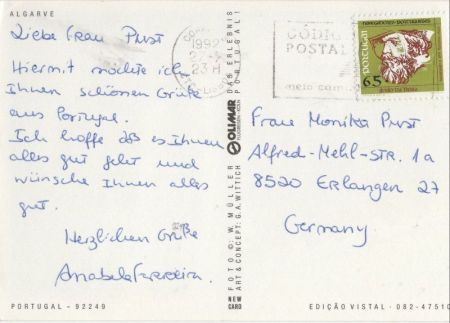 ALGARVE
Liebe Frau Prust
Hiermit möchte ich
Ihnen schönen Grüße
aus Portugal.
Ich hoffe daß es Ihnen
alles gut geht und
wünsche Ihnen alles
gut.
Herzlichen Grüße
Anabela Ferreira.
PORTUGAL - 92249
FOTO ©: W. MÜLLER
ART & CONCEPT: G.A. WITTICH
DAS ERLEBNIS
PORTUGAL!
OLIMAR
FLUGREISEN · KÖLN
NEW
CARD
1992
23H
CÓDIGO
POSTAL
meio cam
navegadores portugueses
PORTUGAL
65
Frau Monika Prust
Alfred-Mehl-STR. 1a
8520 Erlangen 27
Germany
EDIÇÃO VISTAL · 082-47510